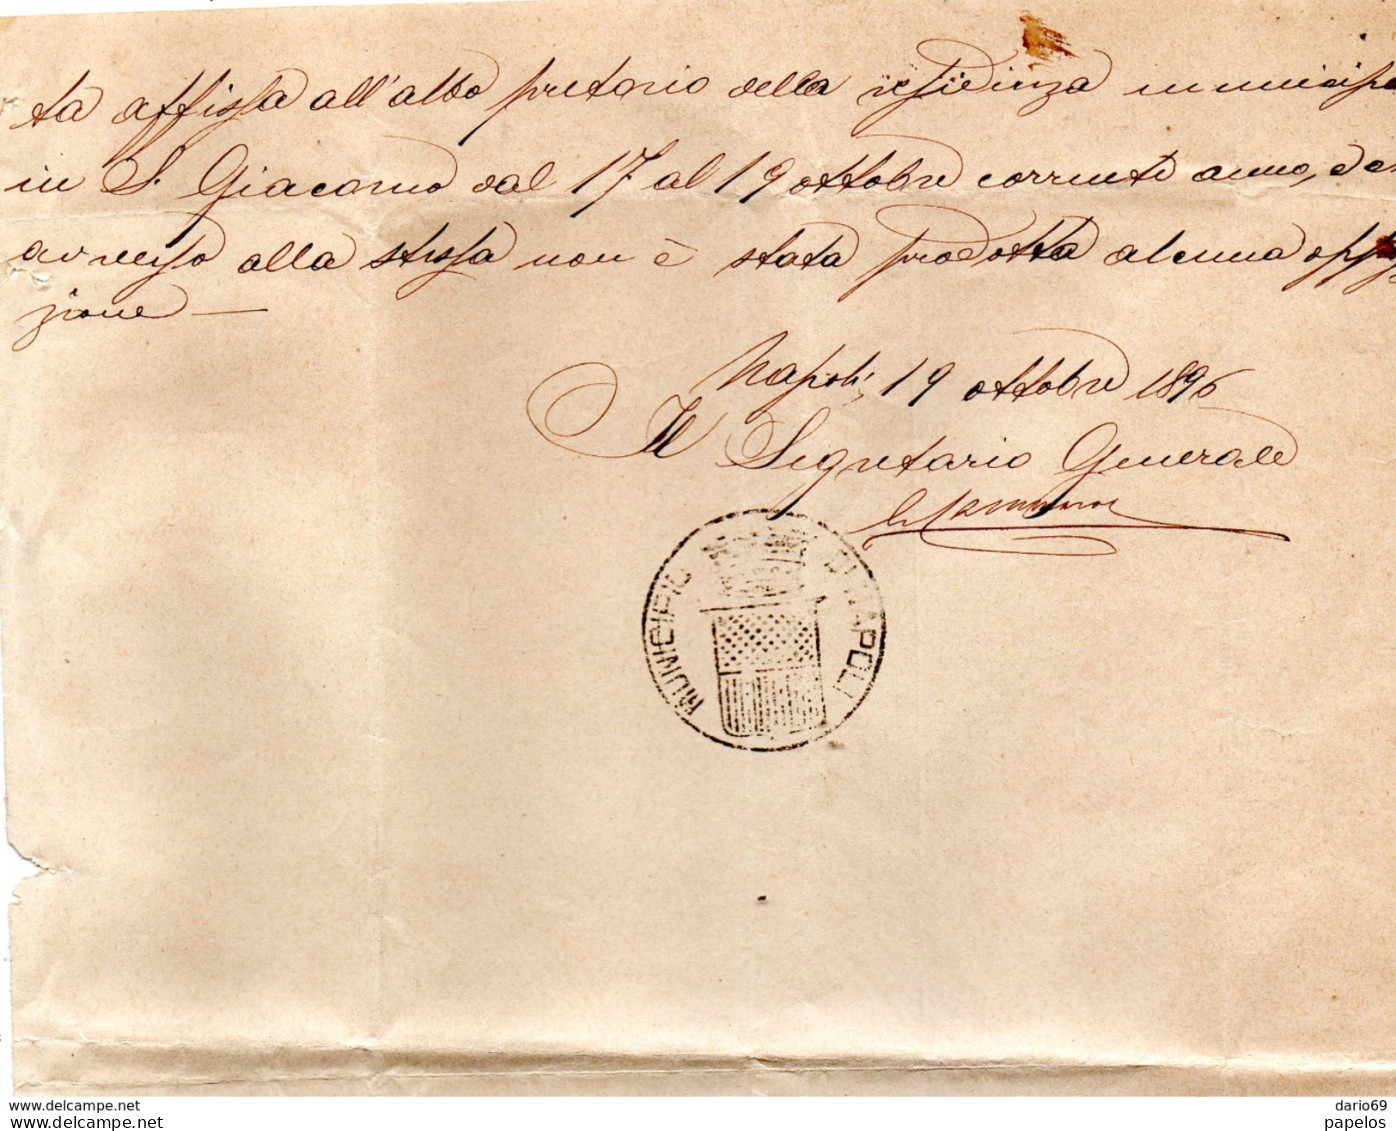 ta affissa all'albo pretorio della residenza municipa
in S. Giacomo dal 17 al 19 ottobre corrente anno, e
avverso alla stessa non è stata prodotta alcuna oppo
zione —
Napoli, 19 ottobre 1896
Il Segretario Generale
MUNICIPIO DI NAPOLI
www.delcampe.net
papelos
dario69
papelos